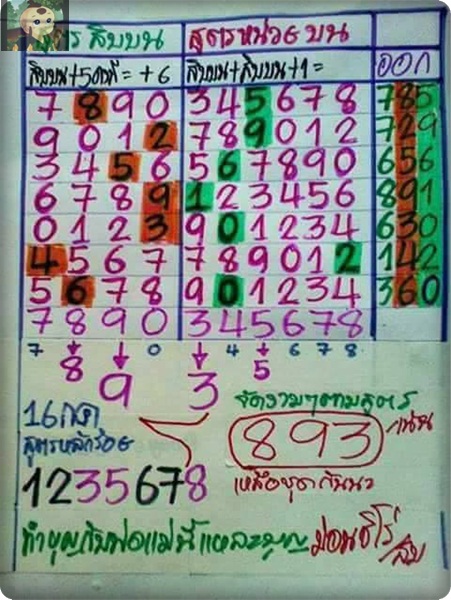 สูตร สิบบน สูตรหน่วย บน
ออก
สิบบน+5 = +6 สิบบน+สิบบน+1=
7 8 9 0 3 4 5 6 7 8 785
9 0 1 2 7 8 9 0 1 2 729
3 4 5 6 5 6 7 8 9 0 656
6 7 8 9 1 2 3 4 5 6 891
0 1 2 3 9 0 1 2 3 4 630
4 5 6 7 7 8 9 0 1 2 142
5 6 7 8 9 0 1 2 3 4 360
7 8 9 0 3 4 5 6 7 8
7 0 4 6 7 8
8 5
9 3
16 กค
สูตรหลักร้อย
12335678
จัดงามๆตามสูตร
893
เน้น
ทำบุญกับพ่อแม่นี่แหละบุญ